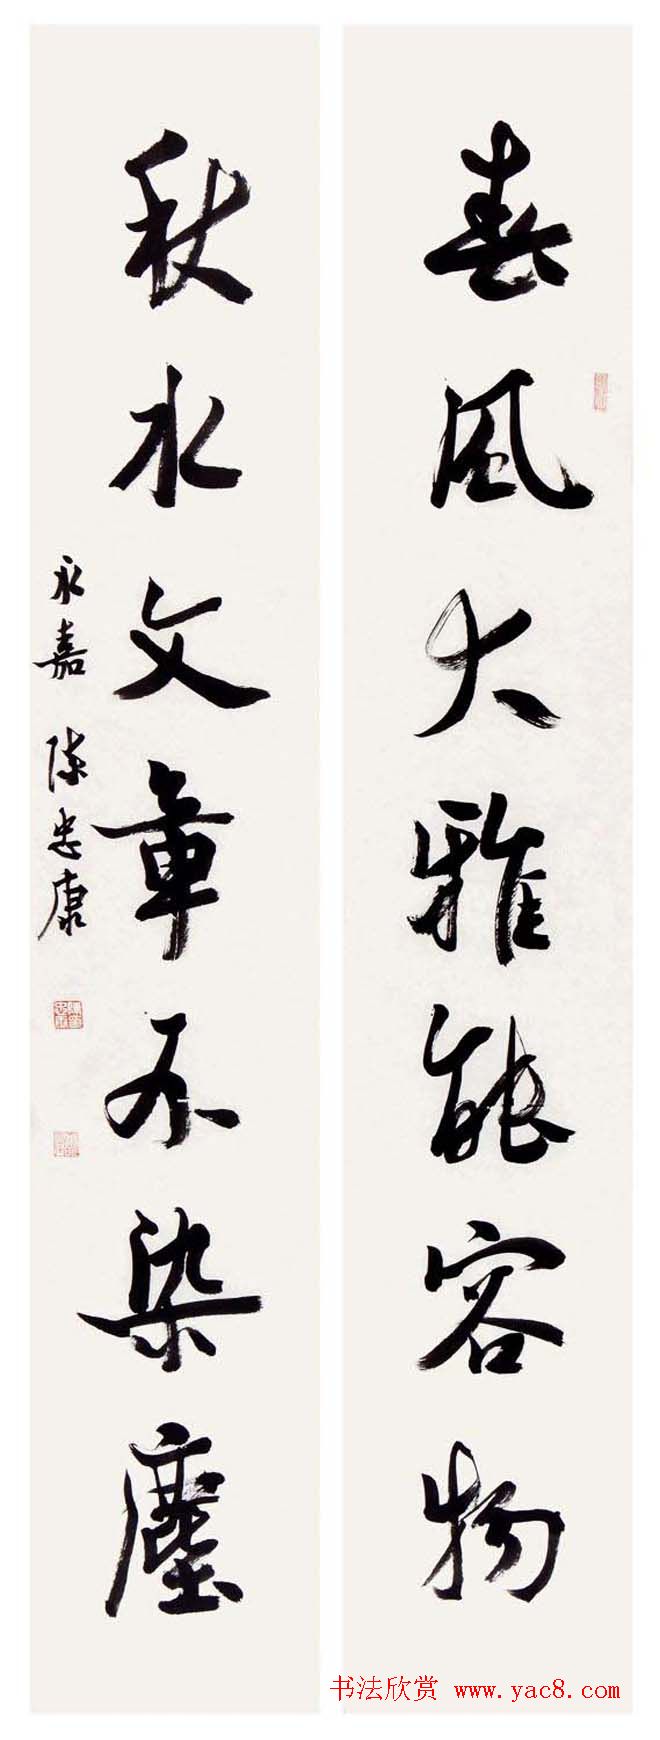 春風大雅能容物
秋水文章不染塵
永嘉 陳忠康
书法欣赏 www.yac8.com